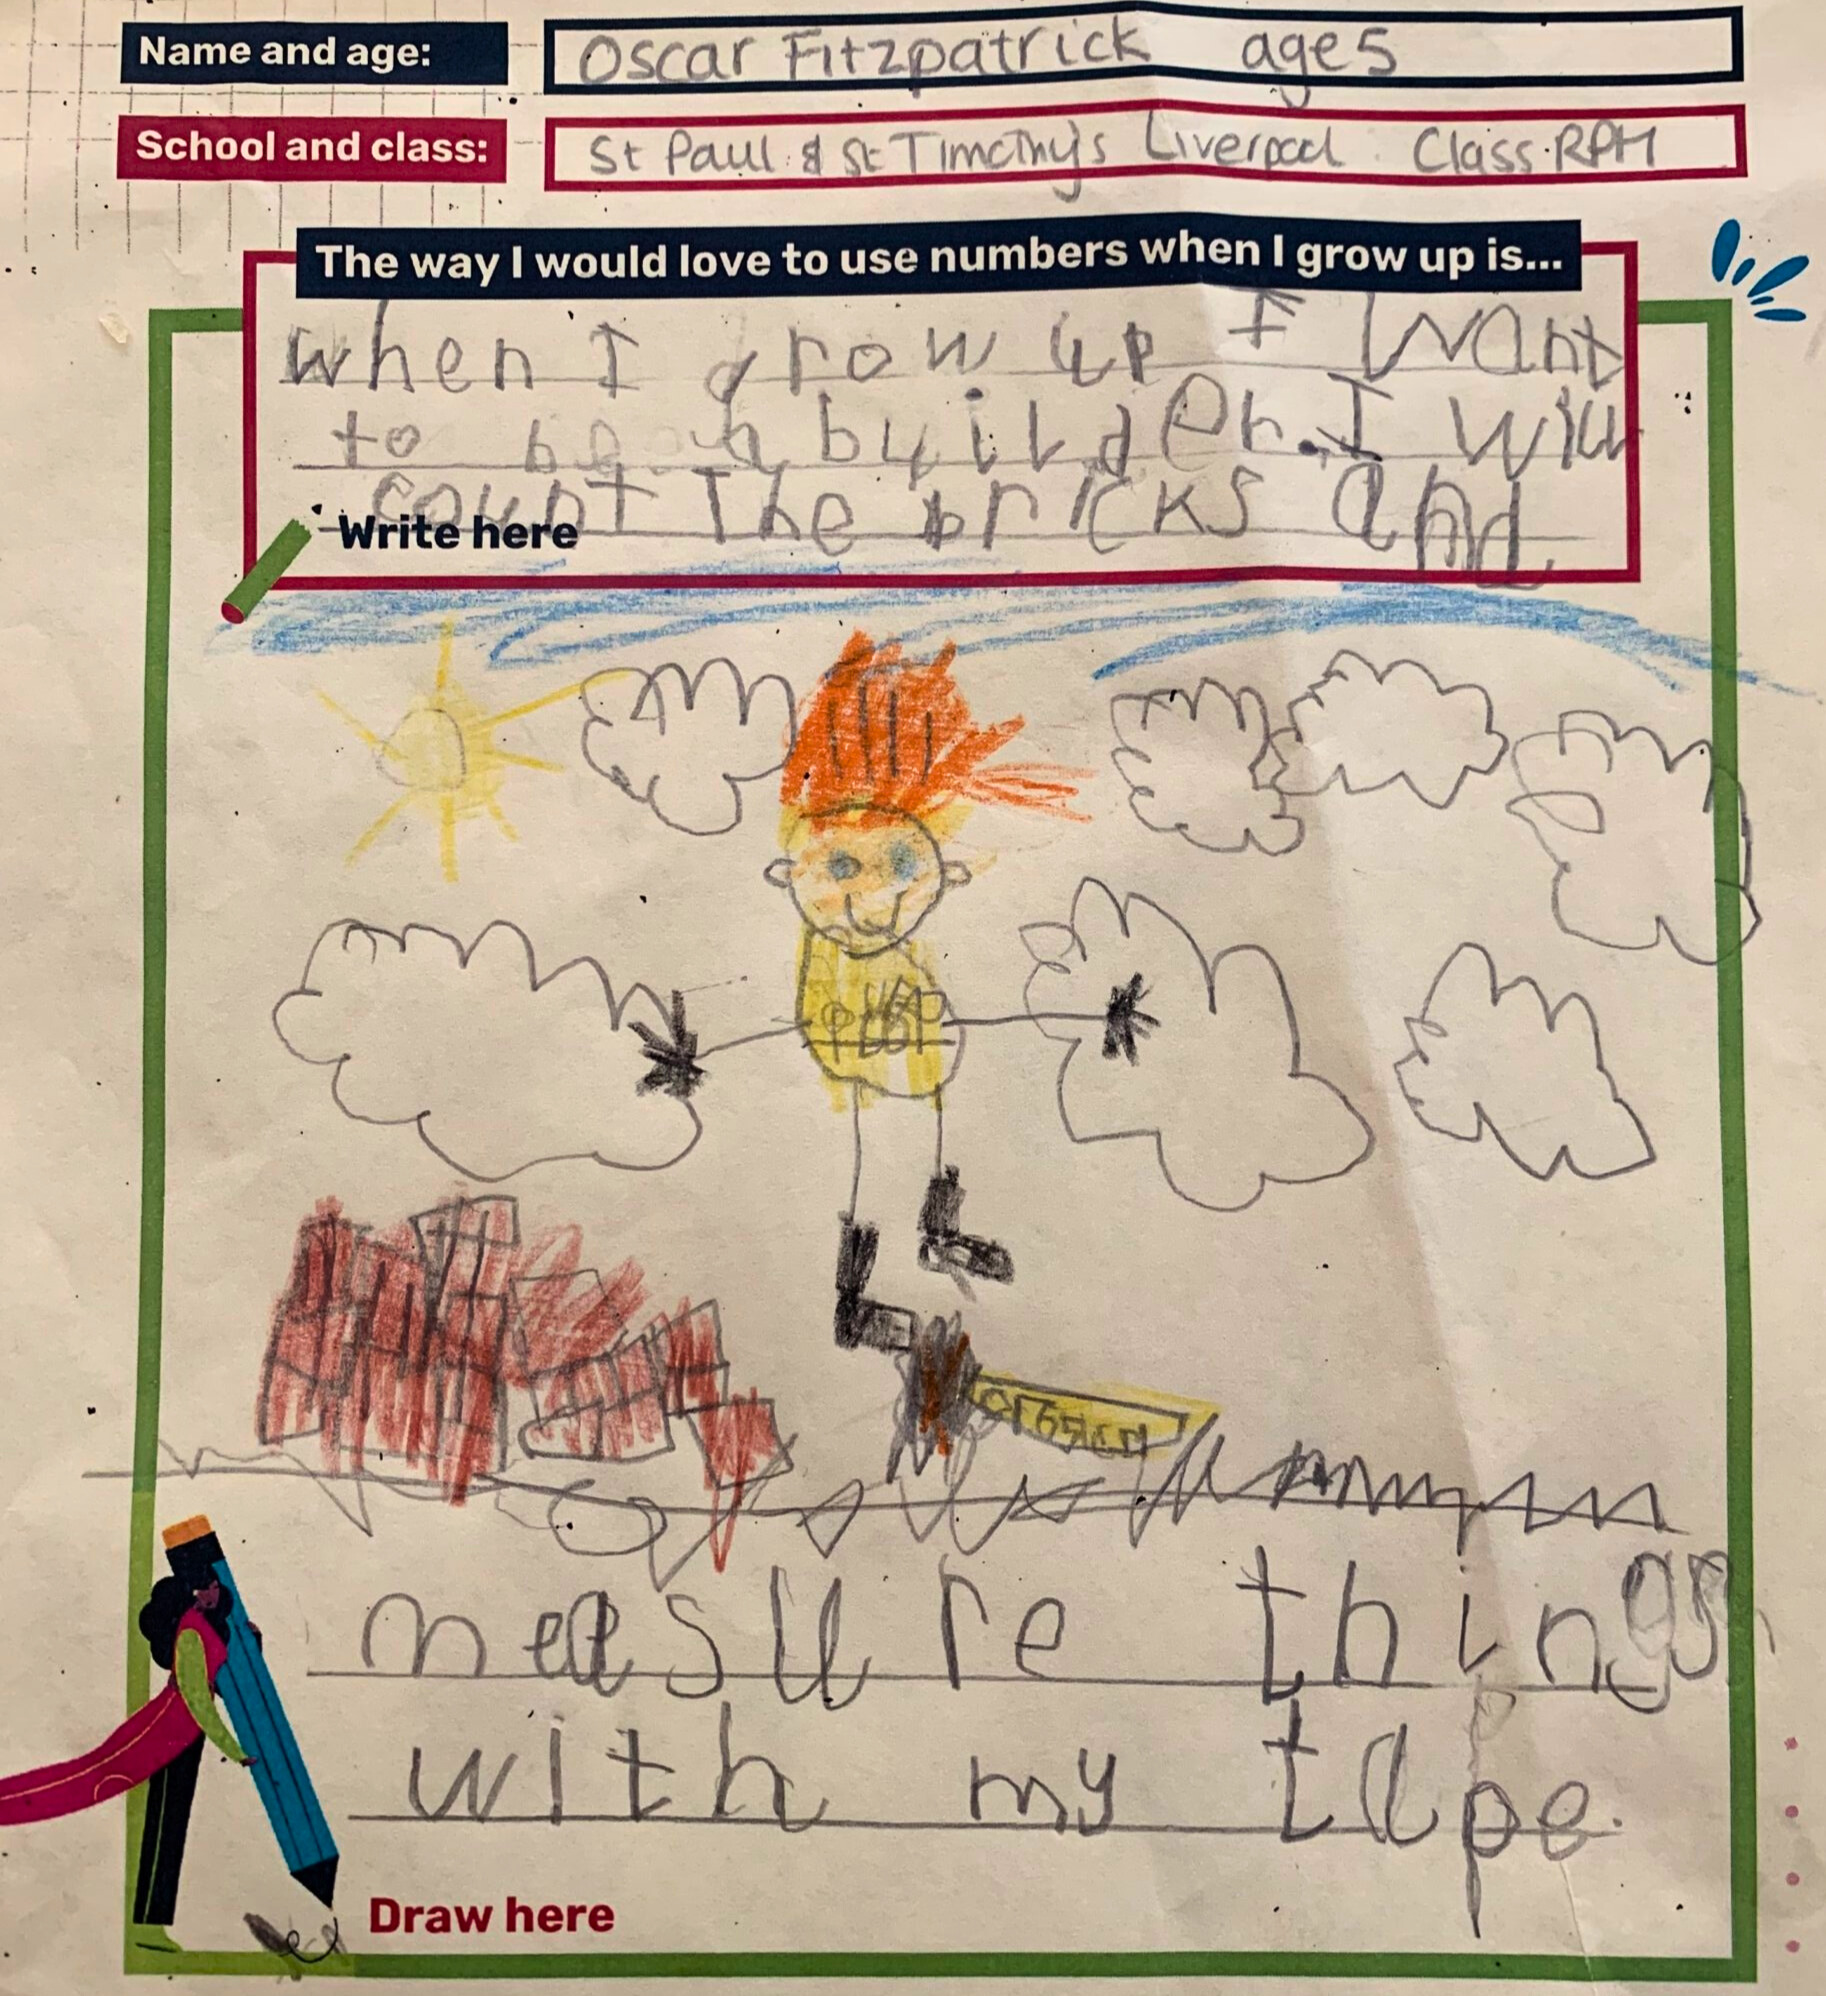 Name and age: Oscar Fitzpatrick age 5
School and class: St Paul & St Timothy's Liverpool Class RPM
The way I would love to use numbers when I grow up is...
when I grow up I want
to be a builder. I will
count the bricks and
Write here
measure things
with my tape.
Draw here